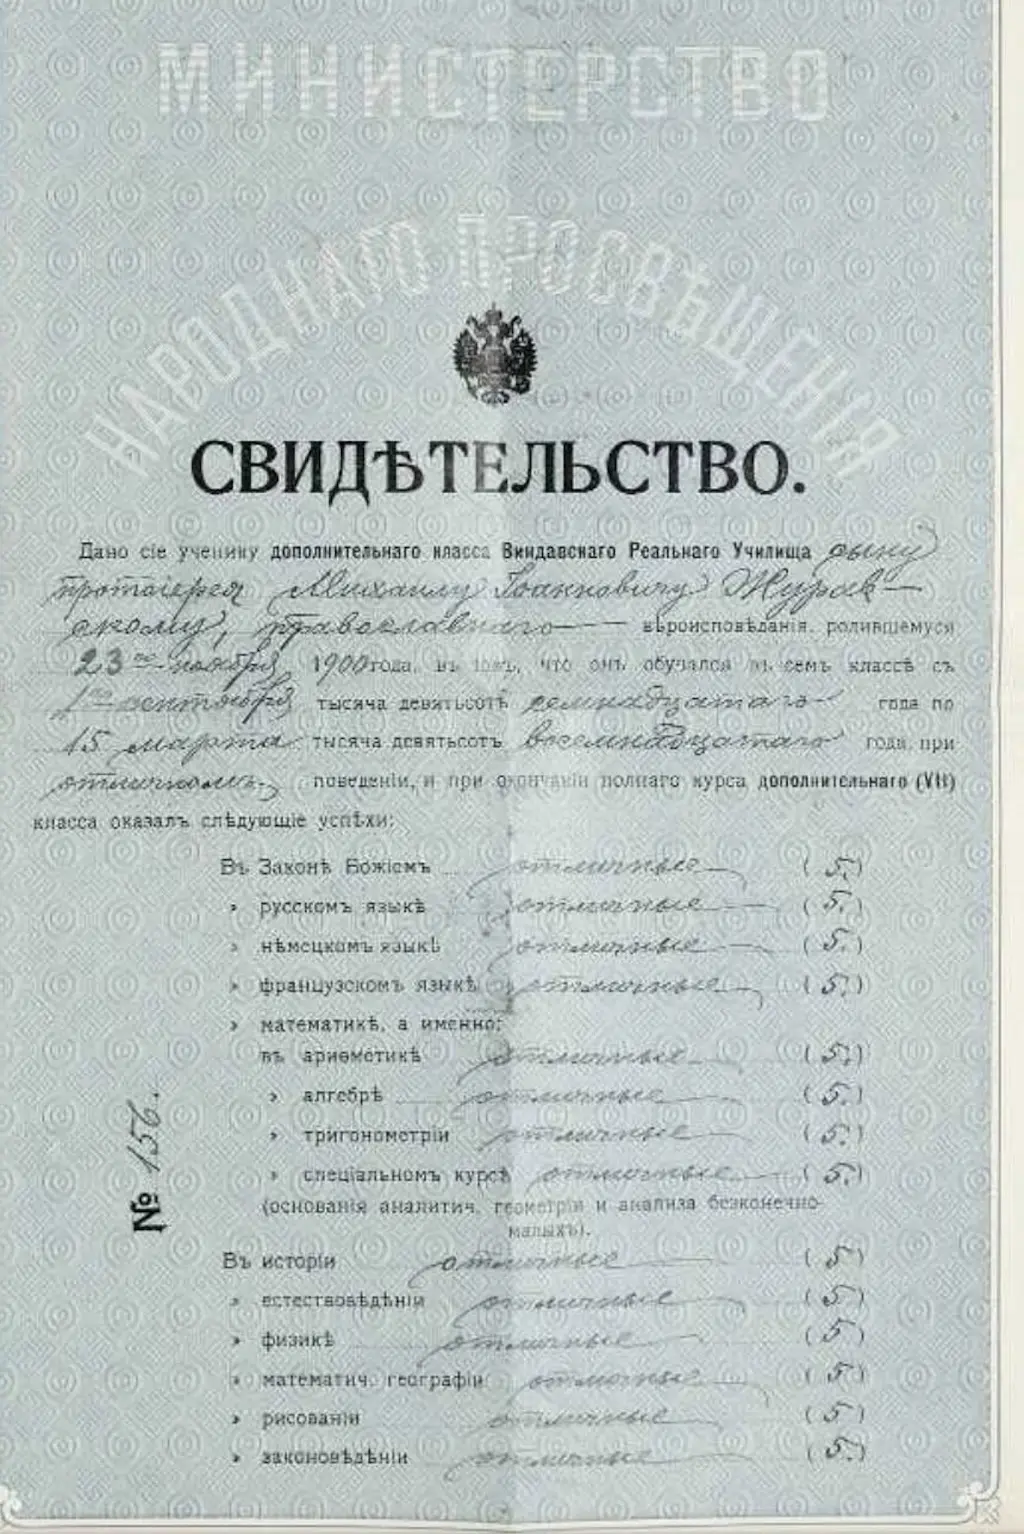 МИНИСТЕРСТВО
НАРОДНАГО ПРОСВѢЩЕНІЯ
СВИДѢТЕЛЬСТВО.
Дано сіе ученику дополнительнаго класса Виндавскаго Реальнаго Училища сыну
протоіерея Михаилу Іоанновичу Журав-
скому, православнаго вѣроисповѣданія, родившемуся
23го ноября 1900 года, въ томъ, что онъ обучался въ семъ классѣ съ
1го сентября тысяча девятьсотъ семнадцатаго года по
15 марта тысяча девятьсотъ восемнадцатаго года, при
отличномъ поведеніи, и при окончаніи полнаго курса дополнительнаго (VII)
класса оказалъ слѣдующіе успѣхи:
Въ Законѣ Божіемъ отличные (5.)
» русскомъ языкѣ отличные (5.)
» нѣмецкомъ языкѣ отличные (5.)
» французскомъ языкѣ отличные (5.)
» математикѣ, а именно:
въ ариѳметикѣ отличные (5.)
» алгебрѣ отличные (5.)
» тригонометріи отличные (5.)
» спеціальномъ курсѣ отличные (5.)
(основанія аналитич. геометріи и анализа безконечно-
малыхъ).
Въ исторіи отличные (5)
» естествовѣдѣніи отличные (5)
» физикѣ отличные (5)
» математич. географіи отличные (5)
» рисованіи отличные (5)
» законовѣдѣніи отличные (5.)
№ 156.